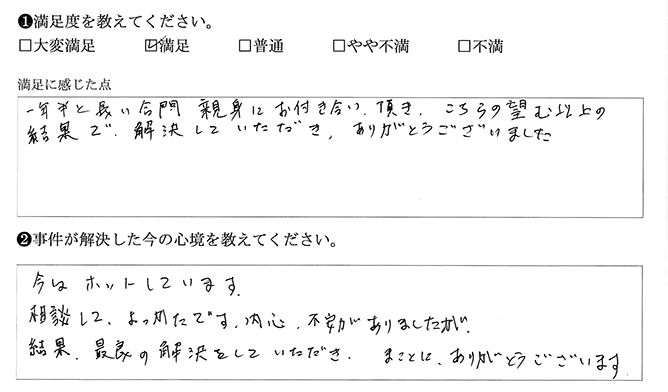 ❶満足度を教えてください。
□大変満足 ☑満足 □普通 □やや不満 □不満
満足に感じた点
一年半と長い合門 親身にお付き合い頂き、こちらの望む以上の
結果で、解決していただき、ありがとうございました
❷事件が解決した今の心境を教えてください。
今はホットしています。
相談して、よかたです。内心、不安がありましたが、
結果、最良の解決をしていただき、まことに、ありがとうございます